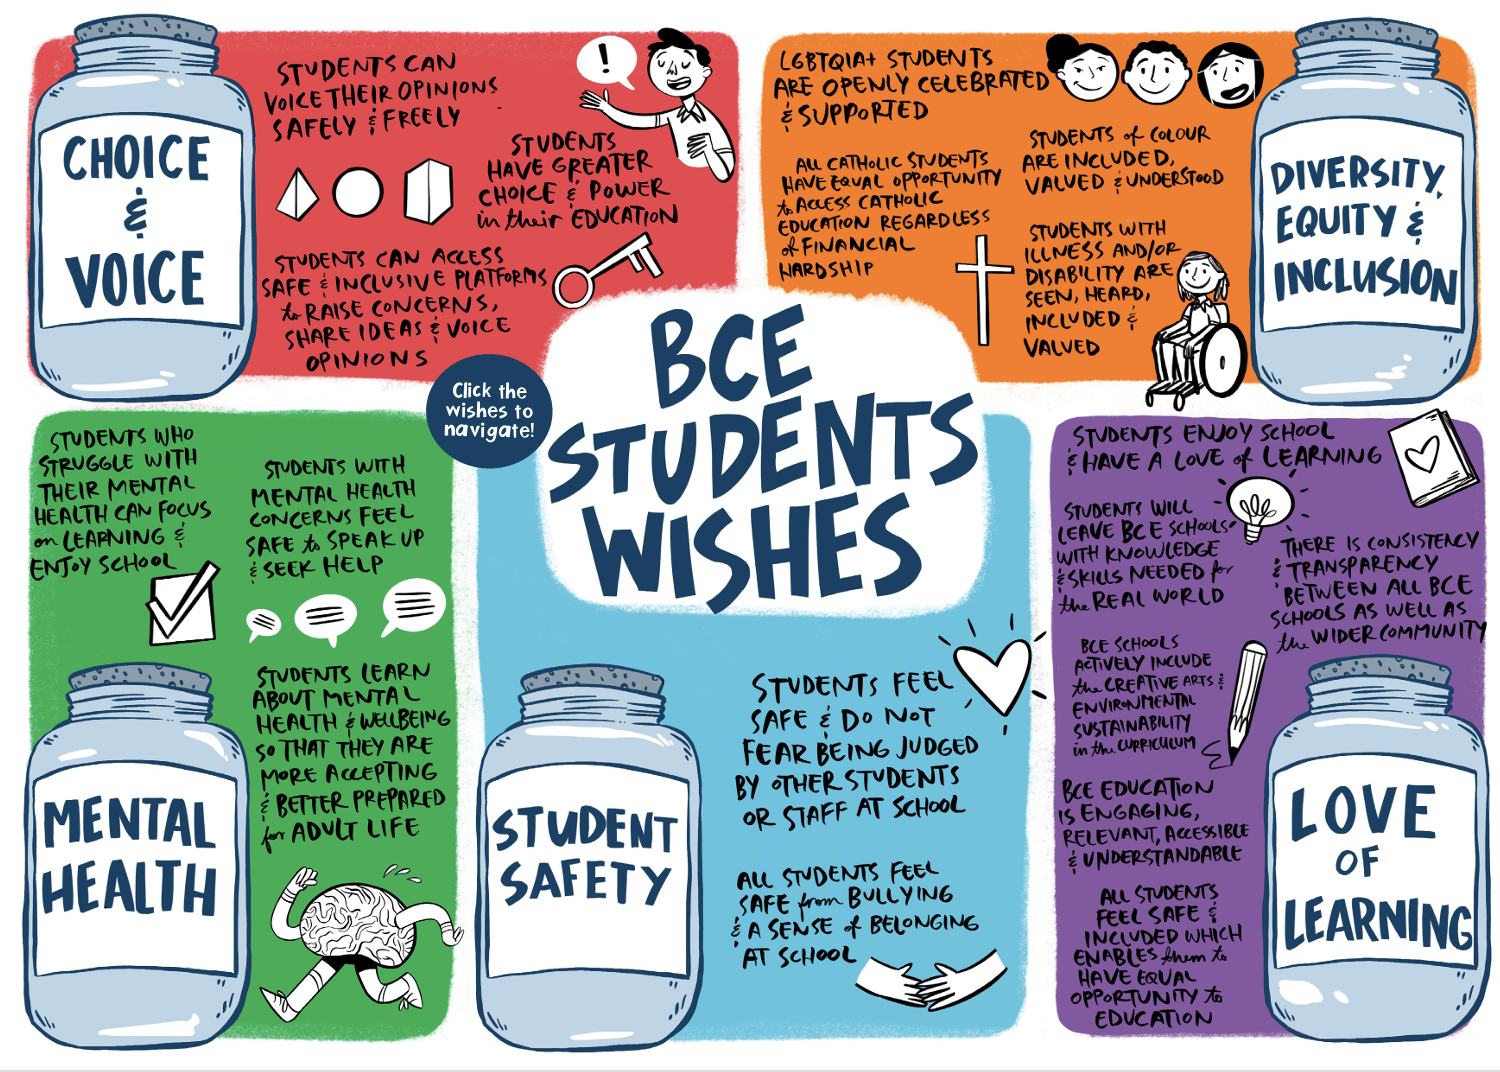 CHOICE
&
VOICE
STUDENTS CAN
VOICE THEIR OPINIONS
SAFELY & FREELY
!
STUDENTS
HAVE GREATER
CHOICE & POWER
in their EDUCATION
STUDENTS CAN ACCESS
SAFE & INCLUSIVE PLATFORMS
to RAISE CONCERNS,
SHARE IDEAS & VOICE
OPINIONS
LGBTQIA+ STUDENTS
ARE OPENLY CELEBRATED
& SUPPORTED
ALL CATHOLIC STUDENTS
HAVE EQUAL OPPORTUNITY
to ACCESS CATHOLIC
EDUCATION REGARDLESS
of FINANCIAL
HARDSHIP
STUDENTS of COLOUR
ARE INCLUDED,
VALUED & UNDERSTOOD
STUDENTS WITH
ILLNESS AND/OR
DISABILITY ARE
SEEN, HEARD,
INCLUDED &
VALUED
DIVERSITY,
EQUITY &
INCLUSION
BCE
STUDENTS
WISHES
Click the
wishes to
navigate!
STUDENTS WHO
STRUGGLE WITH
THEIR MENTAL
HEALTH CAN FOCUS
on LEARNING &
ENJOY SCHOOL
STUDENTS WITH
MENTAL HEALTH
CONCERNS FEEL
SAFE to SPEAK UP
& SEEK HELP
STUDENTS LEARN
ABOUT MENTAL
HEALTH & WELLBEING
SO THAT THEY ARE
MORE ACCEPTING
& BETTER PREPARED
for ADULT LIFE
MENTAL
HEALTH
STUDENT
SAFETY
STUDENTS FEEL
SAFE & DO NOT
FEAR BEING JUDGED
BY OTHER STUDENTS
OR STAFF AT SCHOOL
ALL STUDENTS FEEL
SAFE from BULLYING
& A SENSE of BELONGING
AT SCHOOL
STUDENTS ENJOY SCHOOL
& HAVE A LOVE of LEARNING
STUDENTS WILL
LEAVE BCE SCHOOLS
WITH KNOWLEDGE
& SKILLS NEEDED for
the REAL WORLD
THERE IS CONSISTENCY
& TRANSPARENCY
BETWEEN ALL BCE
SCHOOLS AS WELL AS
the WIDER COMMUNITY
BCE SCHOOLS
ACTIVELY INCLUDE
the CREATIVE ARTS &
ENVIRONMENTAL
SUSTAINABILITY
in the CURRICULUM
BCE EDUCATION
IS ENGAGING,
RELEVANT, ACCESSIBLE
& UNDERSTANDABLE
ALL STUDENTS
FEEL SAFE &
INCLUDED WHICH
ENABLES them to
HAVE EQUAL
OPPORTUNITY to
EDUCATION
LOVE
OF
LEARNING